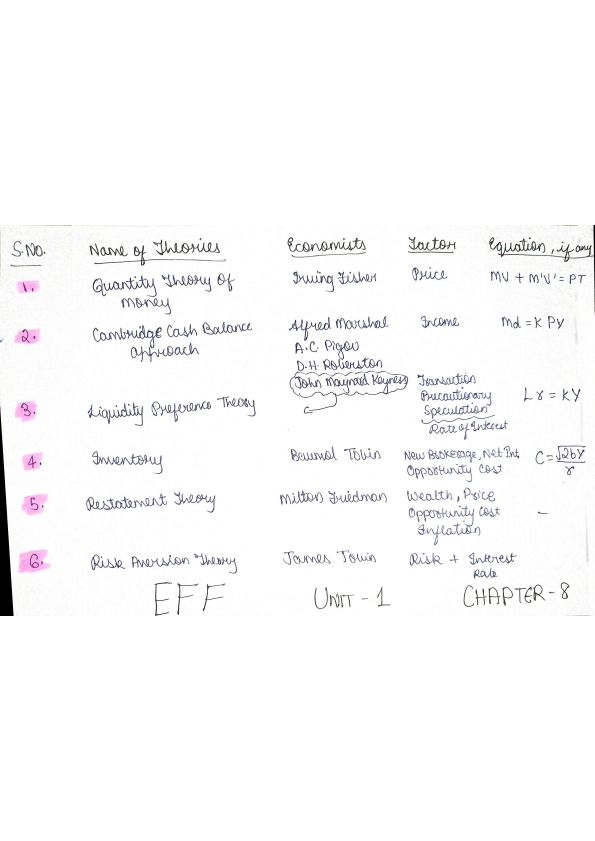 S.No. Name of Theories Economists Factor Equation, if any
1. Quantity Theory Of Irving Fisher Price MV + M'V' = PT
Money
2. Cambridge Cash Balance Alfred Marshal Income Md = K PY
Approach A.C. Pigou
D.H. Roberston
John Maynard Keyness Transaction
3. Liquidity Preference Theory Precautionary L r = KY
Speculation
Rate of Interest
4. Inventory Baumol Tobin New Brokerage, Net Int, C = √2bY / r
Opportunity Cost
5. Restatement Theory Milton Friedman Wealth, Price
Opportunity Cost –
Inflation
6. Risk Aversion Theory James Tobin Risk + Interest
Rate
EFF UNIT - 1 CHAPTER - 8